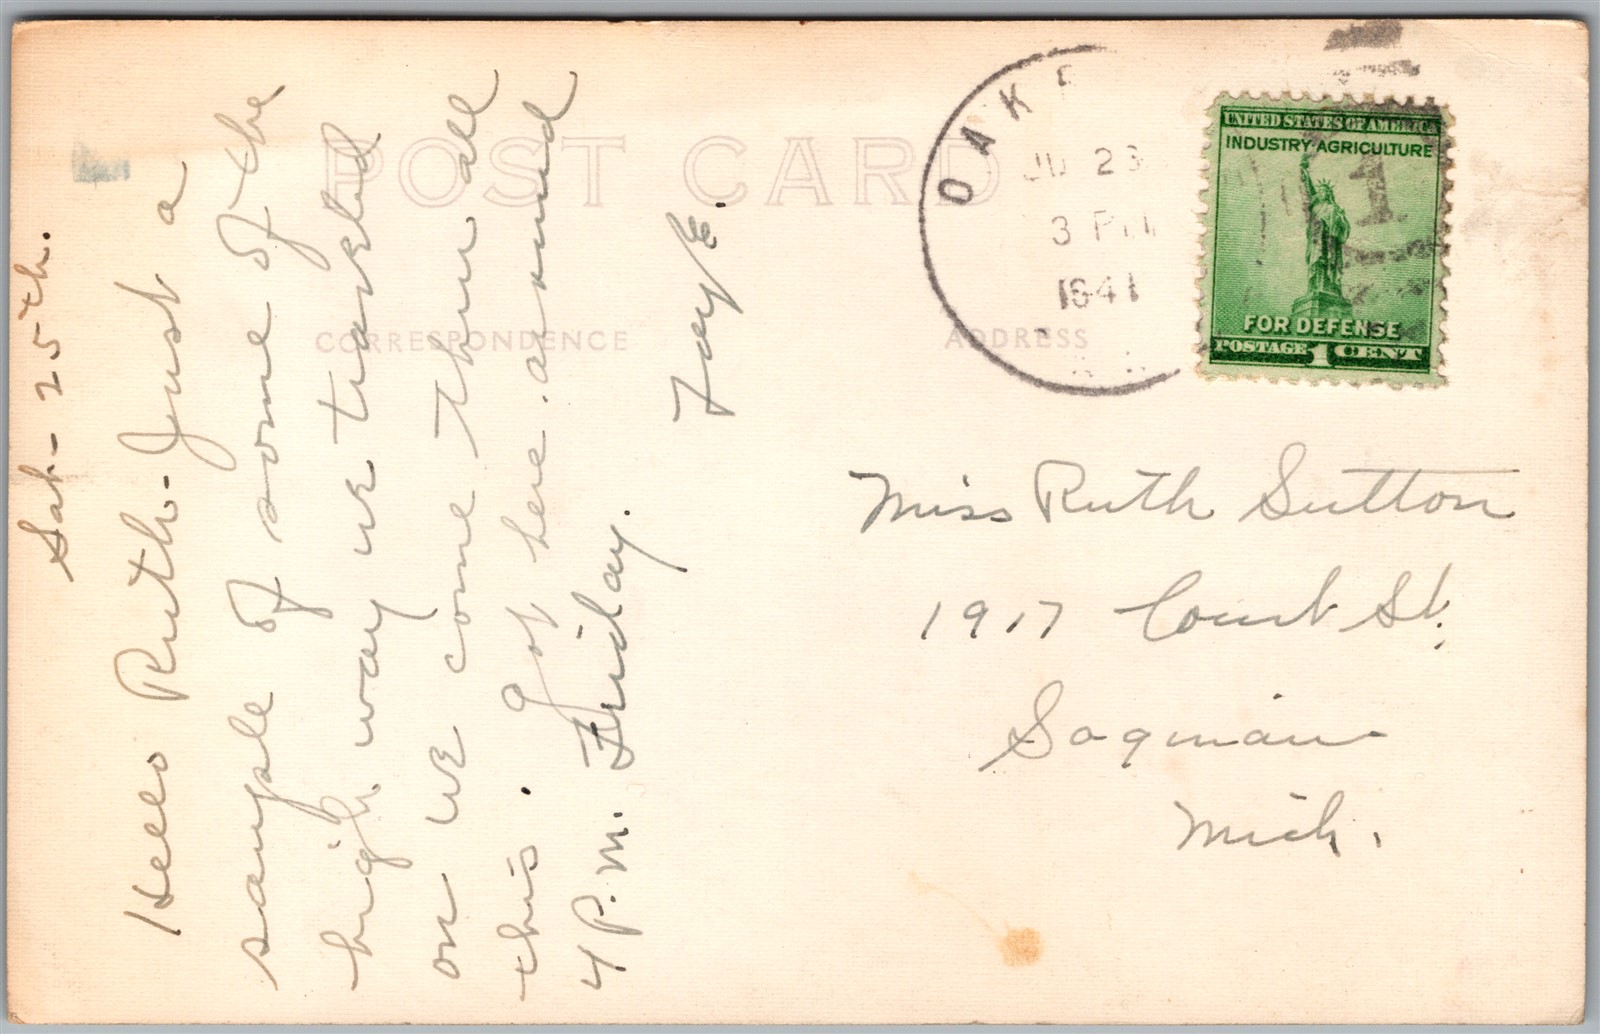 Sat - 25th.
Hello Ruth - Just a
sample of some of the
high way we traveled
on we come thru all
this. Got here around
4 P.M. Friday.
Fay E.
POST CARD
CORRESPONDENCE
ADDRESS
OAK
23
3 PM
1941
UNITED STATES OF AMERICA
INDUSTRY-AGRICULTURE
FOR DEFENSE
POSTAGE 1 CENT
1
Miss Ruth Sutton
1917 Court St.
Saginaw
Mich.